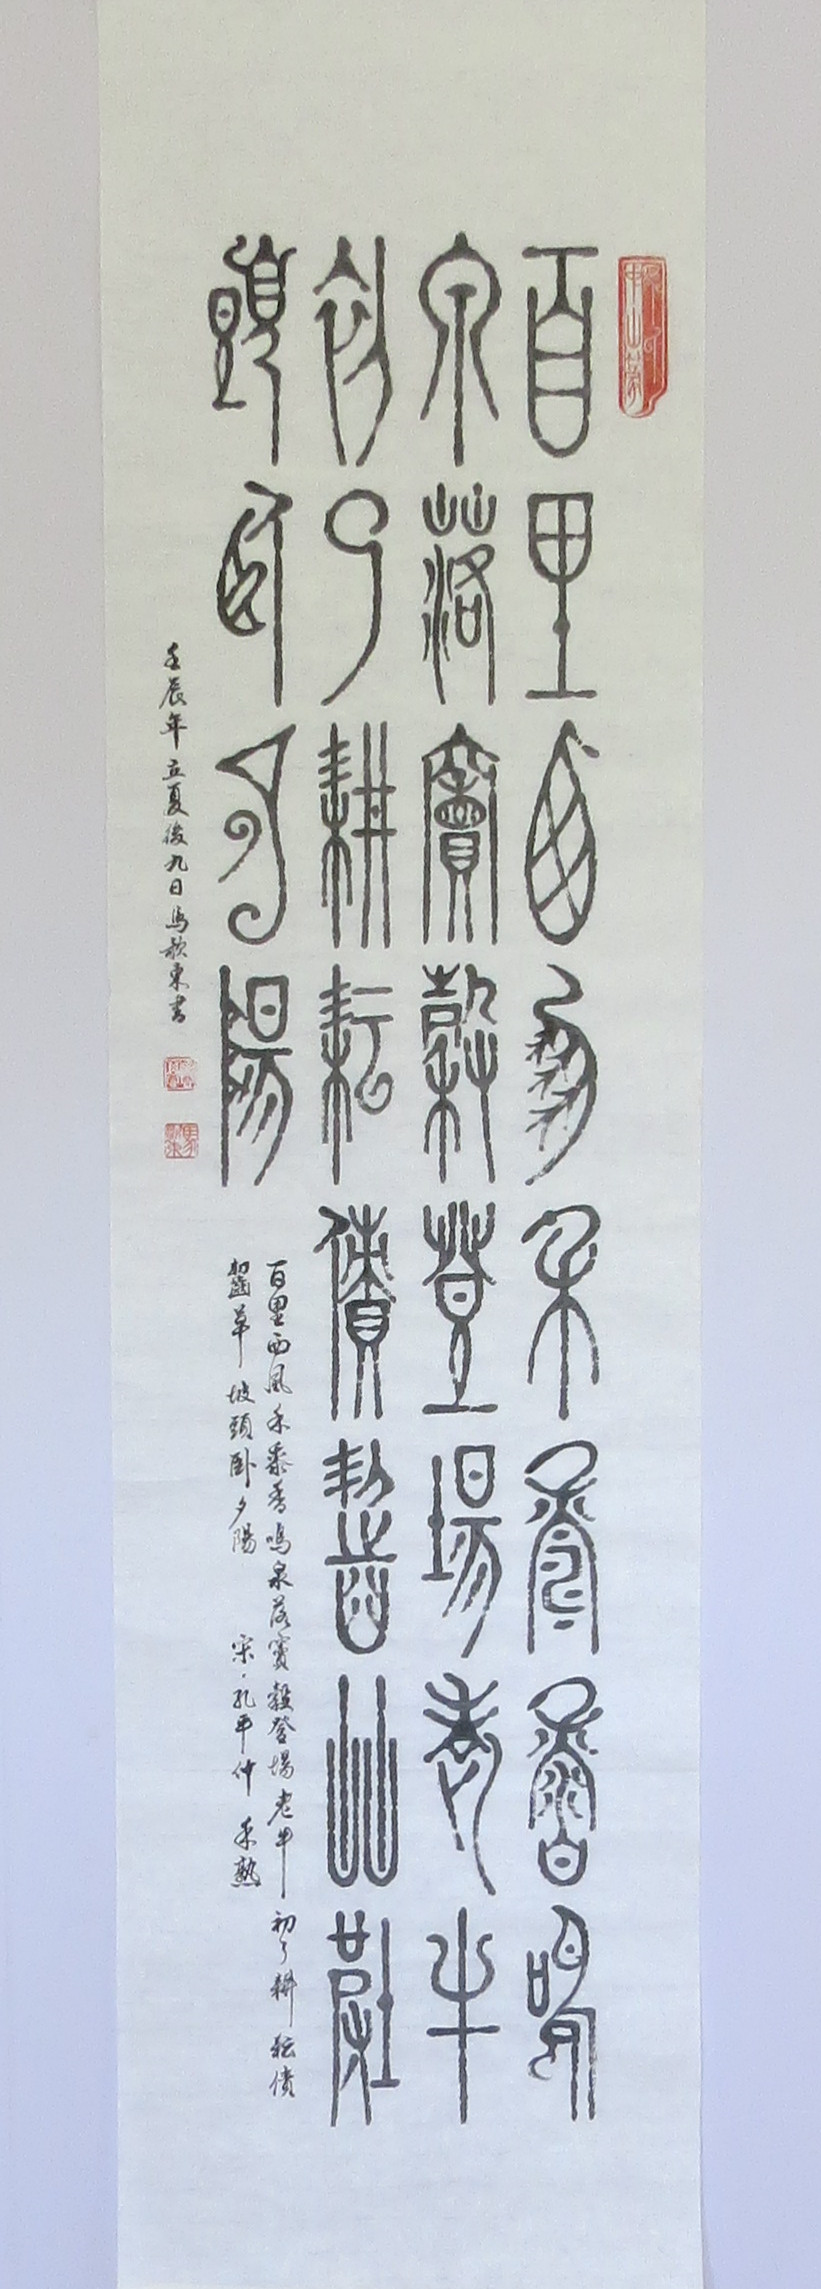 百里西風禾黍香鳴
泉落竇穀登場老牛
初了耕耘債齧草坡
頭臥夕陽
百里西風禾黍香鳴泉落竇穀登場老牛初了耕耘債
齧草坡頭卧夕陽 宋·孔平仲 禾熟
壬辰年立夏後九日馬歌東書